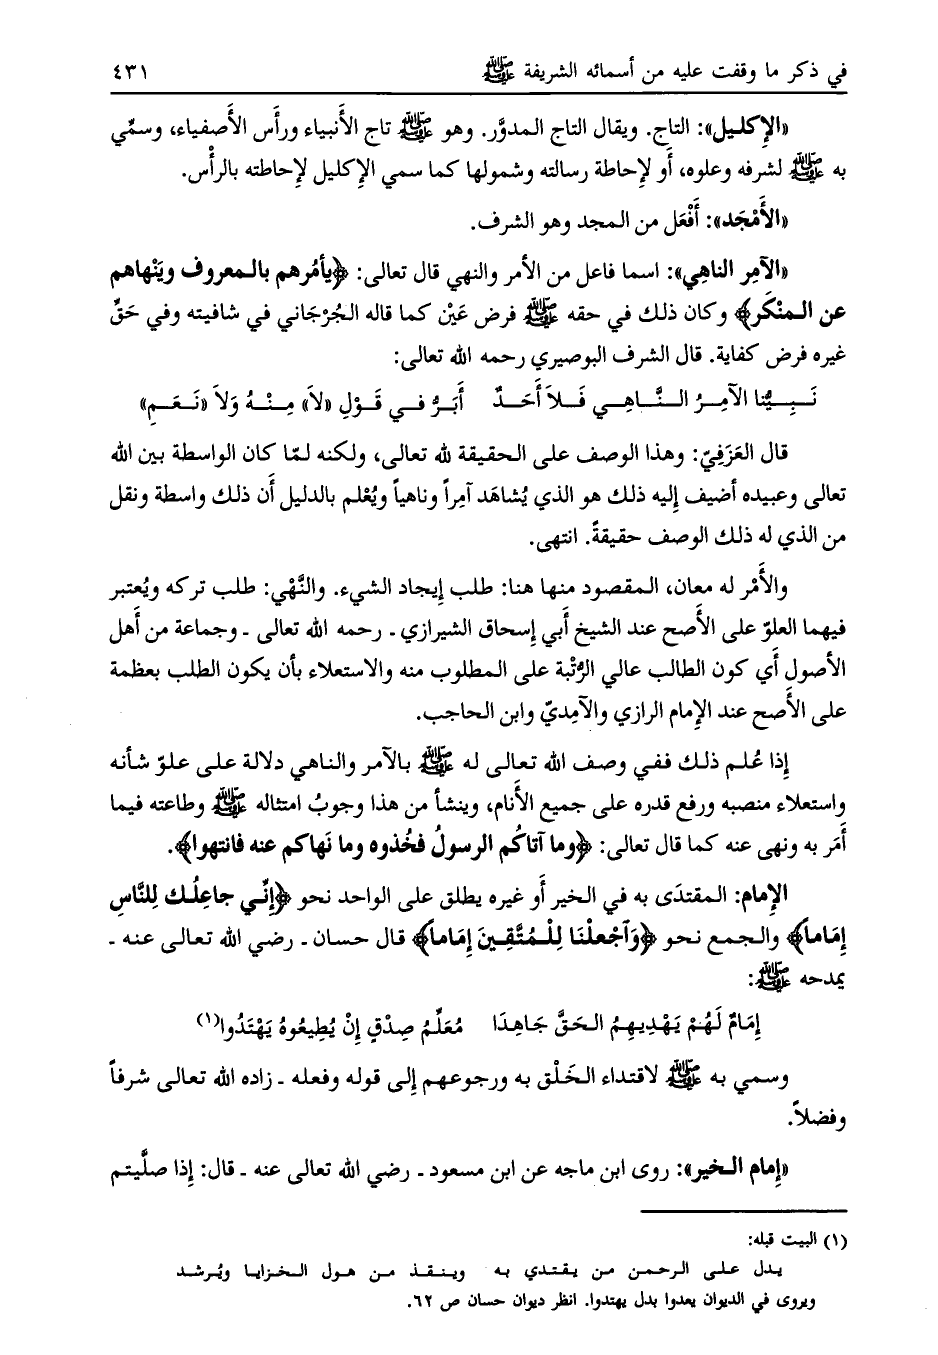 في ذكر ما وقفت عليه من أسمائه الشريفة ﷺ ٤٣١
«الإكليل»: التاج. ويقال التاج المدوَّر. وهو ﷺ تاج الأنبياء ورأس الأصفياء، وسمِّي
به ﷺ لشرفه وعلوه، أو لإحاطة رسالته وشمولها كما سمي الإكليل لإحاطته بالرأْس.
«الأَمْجَد»: أَفْعَل من المجد وهو الشرف.
«الآمِر الناهِي»: اسما فاعل من الأمر والنهي قال تعالى: ﴿يأمُرهم بالمعروف ويَنْهاهم
عن المنْكَر﴾ وكان ذلك في حقه ﷺ فرض عَيْن كما قاله الجُرْجَاني في شافيته وفي حَقِّ
غيره فرض كفاية. قال الشرف البوصيري رحمه الله تعالى:
نَبِيُّنا الآمِرُ النَّاهِي فَلاَ أَحَدٌ أَبَرُّ فِي قَوْلِ «لاَ» مِنْهُ وَلاَ «نَعَمِ»
قال العَزَفِيّ: وهذا الوصف على الحقيقة لله تعالى، ولكنه لمّا كان الواسطة بين الله
تعالى وعبيده أضيف إليه ذلك هو الذي يُشاهَد آمِراً وناهياً ويُعْلم بالدليل أن ذلك واسطة ونقل
من الذي له ذلك الوصف حقيقةً. انتهى.
والأَمْر له معان، المقصود منها هنا: طلب إيجاد الشيء. والنَّهْي: طلب تركه ويُعتبر
فيهما العلوّ على الأصح عند الشيخ أبي إسحاق الشيرازي ـ رحمه الله تعالى ـ وجماعة من أهل
الأصول أي كون الطالب عالي الرُّتْبة على المطلوب منه والاستعلاء بأن يكون الطلب بعظمة
على الأصح عند الإمام الرازي والآمِديّ وابن الحاجب.
إذا عُلم ذلك ففي وصف الله تعالى له ﷺ بالآمر والناهي دلالة على علوّ شأنه
واستعلاء منصبه ورفع قدره على جميع الأنام، وينشأ من هذا وجوبُ امتثاله ﷺ وطاعته فيما
أَمَر به ونهى عنه كما قال تعالى: ﴿وما آتاكُم الرسولُ فخُذوه وما نَهاكم عنه فانتهوا﴾.
الإمام: المقتدَى به في الخير أو غيره يطلق على الواحد نحو ﴿إِنِّي جاعِلُك لِلنَّاسِ
إمَاماً﴾ والجمع نحو ﴿وَٱجْعلْنَا لِلْمُتَّقِينَ إِمَاماً﴾ قال حسان ـ رضي الله تعالى عنه ـ
يمدحه ﷺ:
إِمَامٌ لَهُمْ يَهْدِيهِمُ الحَقَّ جَاهِدَا مُعَلِّمُ صِدْقٍ إِنْ يُطِيعُوهُ يَهْتَدُوا(١)
وسمي به ﷺ لاقتداء الخَلْق به ورجوعهم إلى قوله وفعله ـ زاده الله تعالى شرفاً
وفضلاً.
«إمام الخير»: روى ابن ماجه عن ابن مسعود ـ رضي الله تعالى عنه ـ قال: إذا صلَّيتم
(١) البيت قبله:
يدل على الرحمن من يقتدي به وينقذ من هول الخزايا ويُرشد
ويروى في الديوان يعدوا بدل يهتدوا. انظر ديوان حسان ص ٦٢.